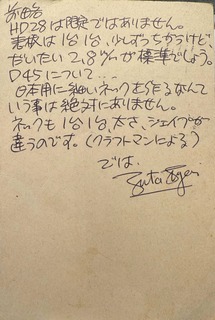 前略
HD28は限定ではありません。
表板は1台1台、少しずつちがうけど、
だいたい2.8㎜が標準でしょう。
D45について...
日本用に細いネックをもうけるなんて
いう事は絶対にありません。
ネックも1台1台、太さ、シェイプが
違うのです。(クラフトマンによる)
では、